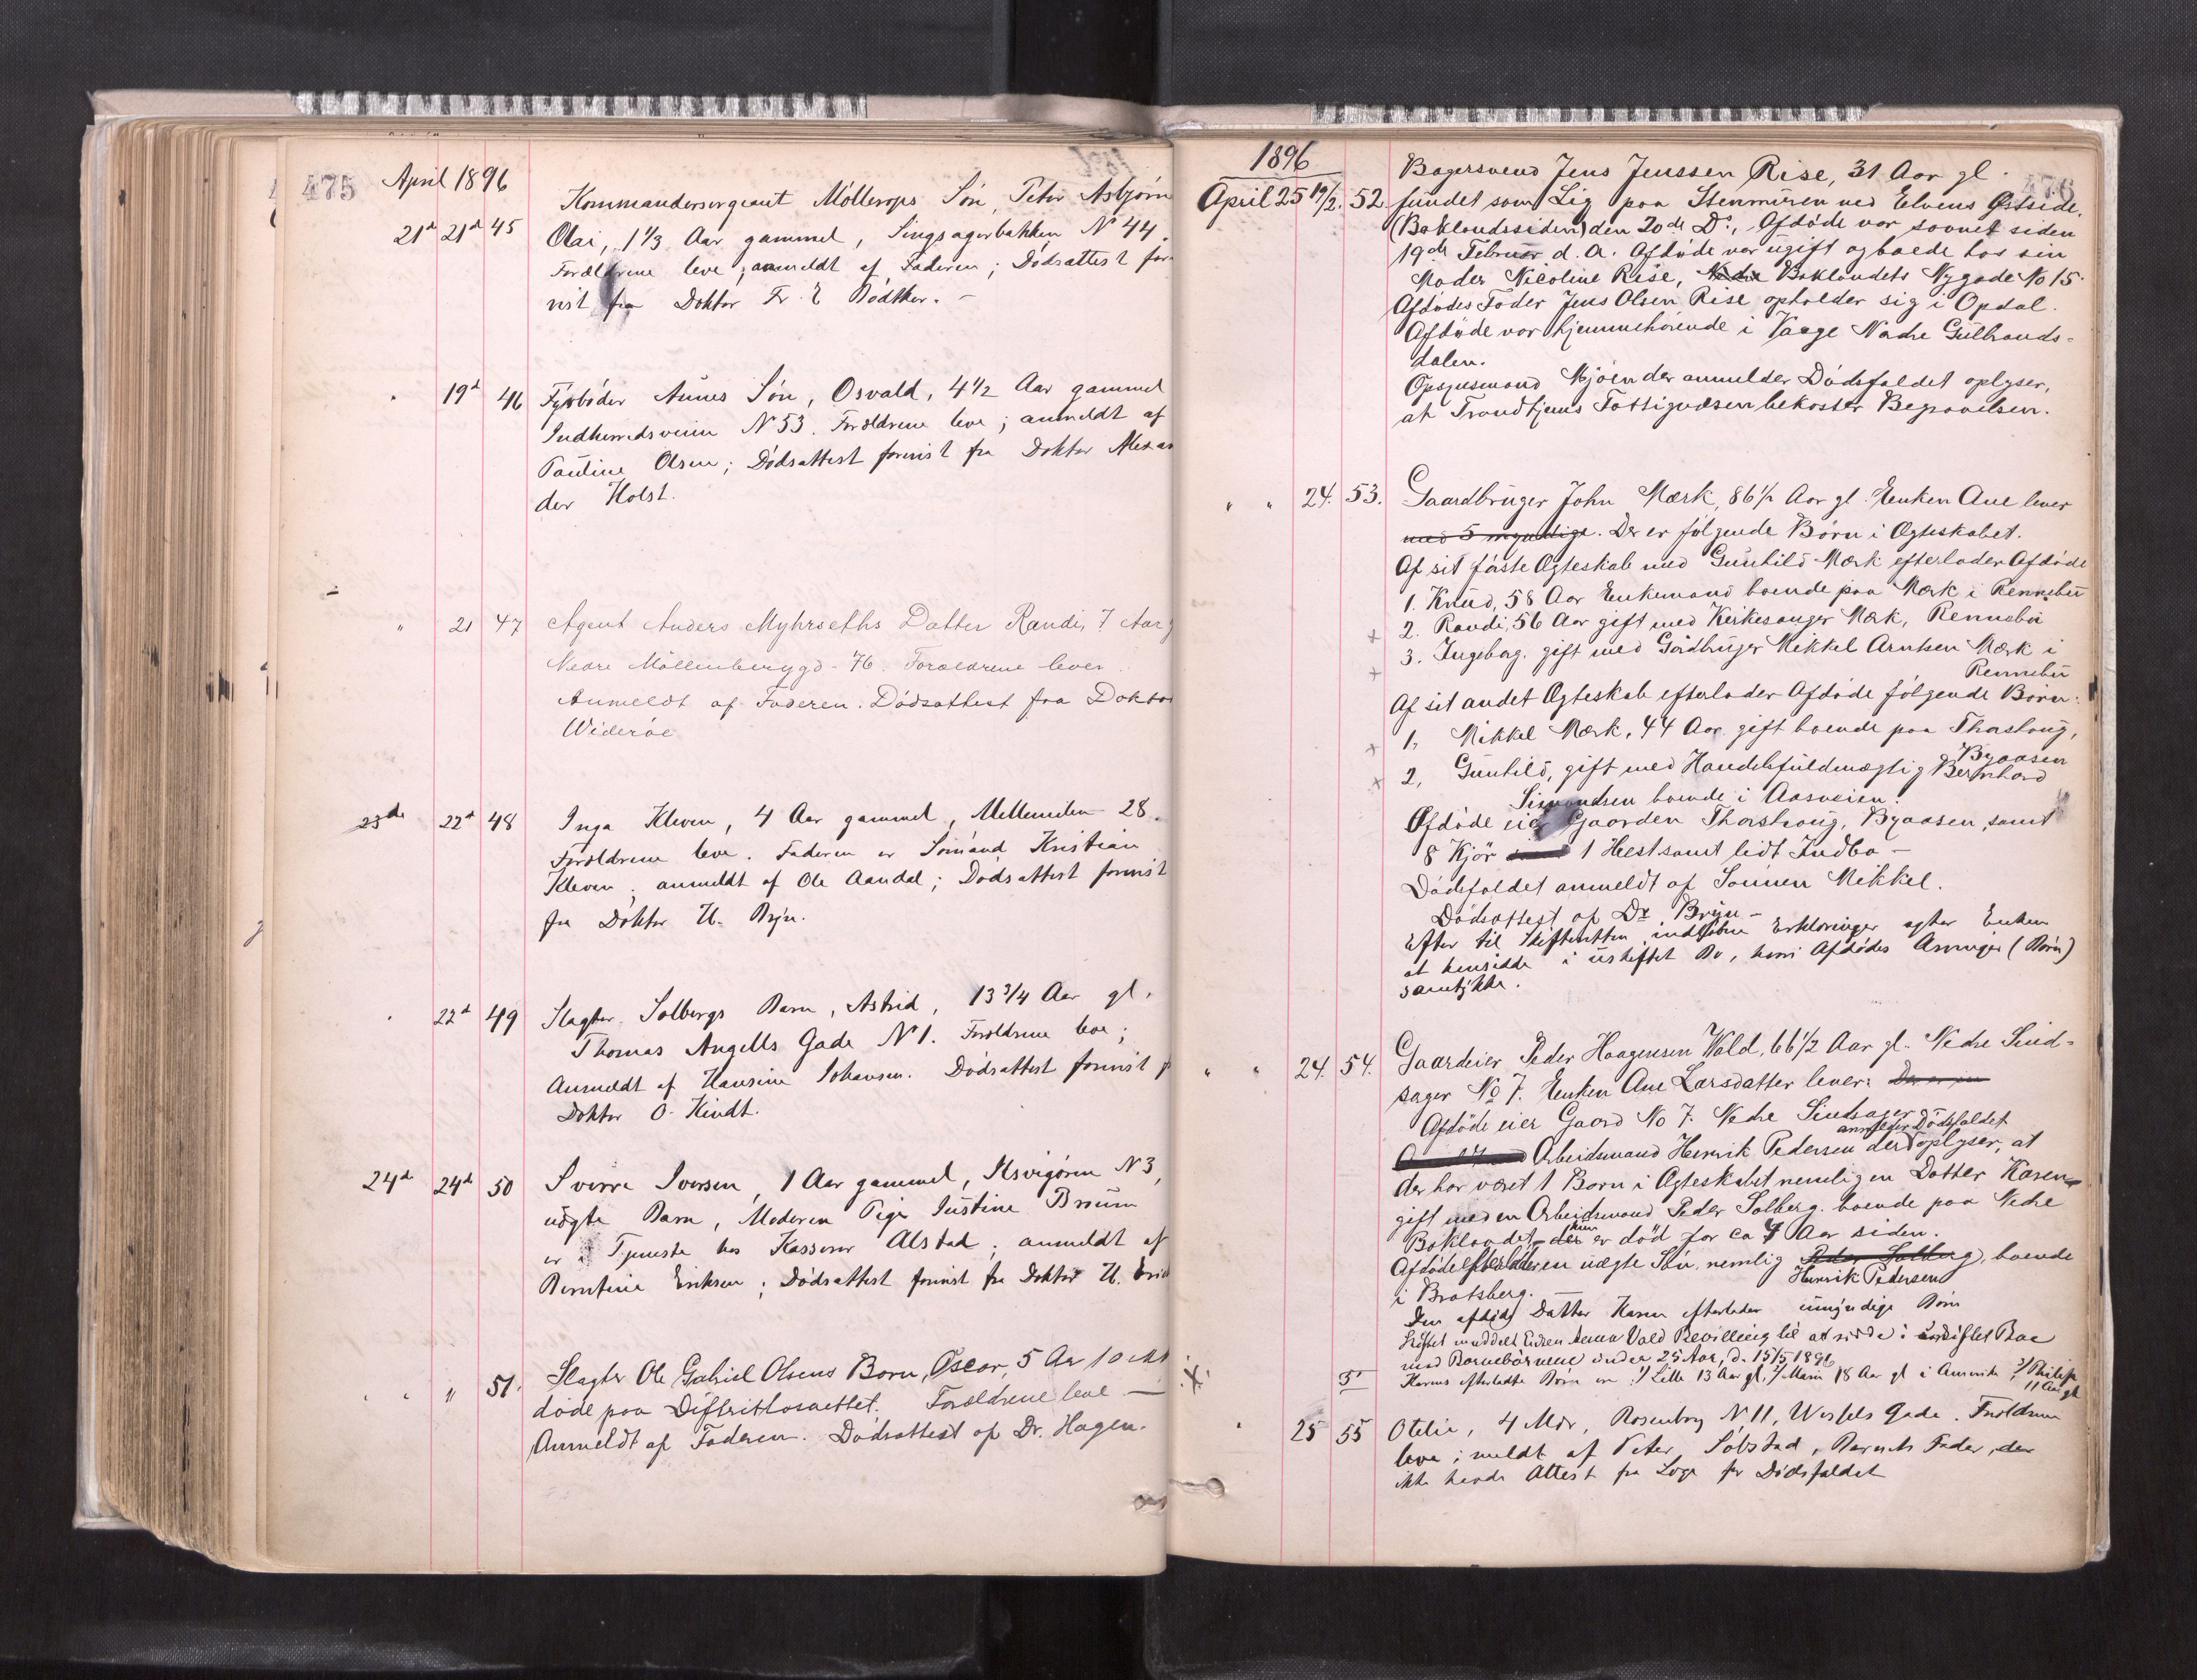 475
April 1896
Kommandersergeant Möllerops Sön, Peter Asbjørn
21d 21d 45 Olai, 1 1/3 Aar gammel, Singsagerbakken N 44.
Forældrene leve; anmeldt af Faderen; Dödsattest fore-
vist fra Doktor Fr. E Bödtker. -
" 19d 46 Fyrböder Aunes Sön, Osvald, 4 1/2 Aar gammel
Indherredsveien N 53. Forældrene leve; anmeldt af
Pauline Olsen; Dödsattest forevist fra Doktor Alexan
der Holst.
" 21 47 Agent Anders Myhrseths Datter Randi, 7 Aar g
Nedre Möllenberggd. 76. Forældrene lever.
Anmeldt af Faderen. Dödsattest fra Doktor
Wideröe
23de 22d 48 Inga Kleven, 4 Aar gammel, Mellemilen 28.
Forældrene leve. Faderen er Sömand Kristian
Kleven; anmeldt af Ole Aandal; Dödsattest forevist
fra Doktor U. Bryn.
" 22d 49 Slagter Solbergs Barn, Astrid, 13 3/4 Aar gl.
Thomas Angells Gade N 1. Forældrene leve;
Anmeldt af Hansine Johansen. Dödsattest forevist f
Doktor O. Kindt.
24de 24de 50 Sverre Iversen, 1 Aar gammel, Ilsvigören N 3,
uægte Barn, Moderen Pige Justine Bruun
er i Tjeneste hos Kasserer Alstad; anmeldt af
Berntine Eriksen; Dödsattest forevist fra Doktor U.
" " " 51. Slagter Ole Gabriel Olsens Barn, Oscar, 5 Aar 10 Md
döde paa Difterithosaettet. Forældrene leve —
Anmeldt af Faderen. Dödsattest af Dr. Hagen.
1896
476
Bagersvend Jens Jenssen Rise, 31 Aar gl.
April 25 19/2. 52. fundet som Lig paa Stenmuren ved Elvens Østside.
(Baklandssiden) den 20de Ds., Afdöde var savnet siden
19de Februar d. A. Afdöde var ugift og boede hos sin
Moder Nicoline Rise, Nedre Baklandets Nygade No 15.
Afdödes Fader Jens Olsen Rise opholder sig i Opdal.
Afdöde var hjemmehörende i Vaage Nordre Gulbrands-
dalen.
Opsynsmand Mjöen der anmelder Dödsfaldet oplyser,
at Trondhjems Fattigvæsen bekoster Begravelsen.
" " 24. 53. Gaardbruger John Mærk, 86 1/2 Aar gl. Enken Ane lever
med 5 myndige. Der er fölgende Börn i Ægteskabet.
Af sit förste Ægteskab med Gunhild Mærk efterlader Afdöde
1. Knud, 58 Aar Enkemand boende paa Mærk i Rennebu
x 2. Randi, 56 Aar gift med Kirkesanger Mærk, Rennebu
x 3. Ingeborg. gift med Gårdbruger Mikkel Arntsen Mærk i
Rennebu
Af sit andet Ægteskab efterlader Afdöde fölgende Börn:
x 1, Mikkel Mærk, 44 Aar gift boende paa Thorstaug,
Byaasen
x 2, Gunhild, gift med Handelsfuldmægtig Bernhard
Simondsen boende i Aasveien.
Afdöde eier Gaarden Thorstaug, Byaasen, samt
8 Kjör samt 1 Hest samt lidt Indbo —
Dödsfaldet anmeldt af Sönnen Mikkel.
Dödsattest af Dr. Bryn —
Efter til Skifteretten indløbne Erklæringer agter Enken
at hensidde i uskiftet Bo, hvori Afdödes Arvinger (Börn)
samtykke.
" " 24. 54. Gaardeier Peder Haagensen Wold, 66 1/2 Aar gl. Nedre Sind-
sager No 7. Enken Ane Larsdatter lever.
Afdöde eier Gaard No 7. Nedre Sindsager
anmelder Dödsfaldet
Arbeidsmand Henrik Pedersen der oplyser, at
der har været 1 Barn i Ægteskabet nemlig en Datter Karen
gift med en Arbeidsmand Peder Solberg. boende paa Nedre
Baklandet, der hun er död for ca 4 Aar siden.
Afdöde efterlader en uægte Sön. nemlig Peder Solberg, boende
Henrik Pedersen
i Bratsberg.
Den afdöde Datter Karen efterlader umyndige Börn
Skiftet meddelt Enken Anna Vold Bevilling til at sidde i uskiftet Bo
med Barnebörnene under 25 Aar, d. 15/5 1896
Karens efterladte Börn ere: 1/ Lille 13 Aar gl, 2/ Marie 18 Aar gl i Amerika, 3/ Philip
11 Aar gl
" 25 55 Otelie, 4 Mdr, Rosenborg N 11, Wessels Gade. Forældrene
leve; meldt af Peter Solstad, Barnets Fader, der
ikke havde Attest fra Læge for Dödsfaldet